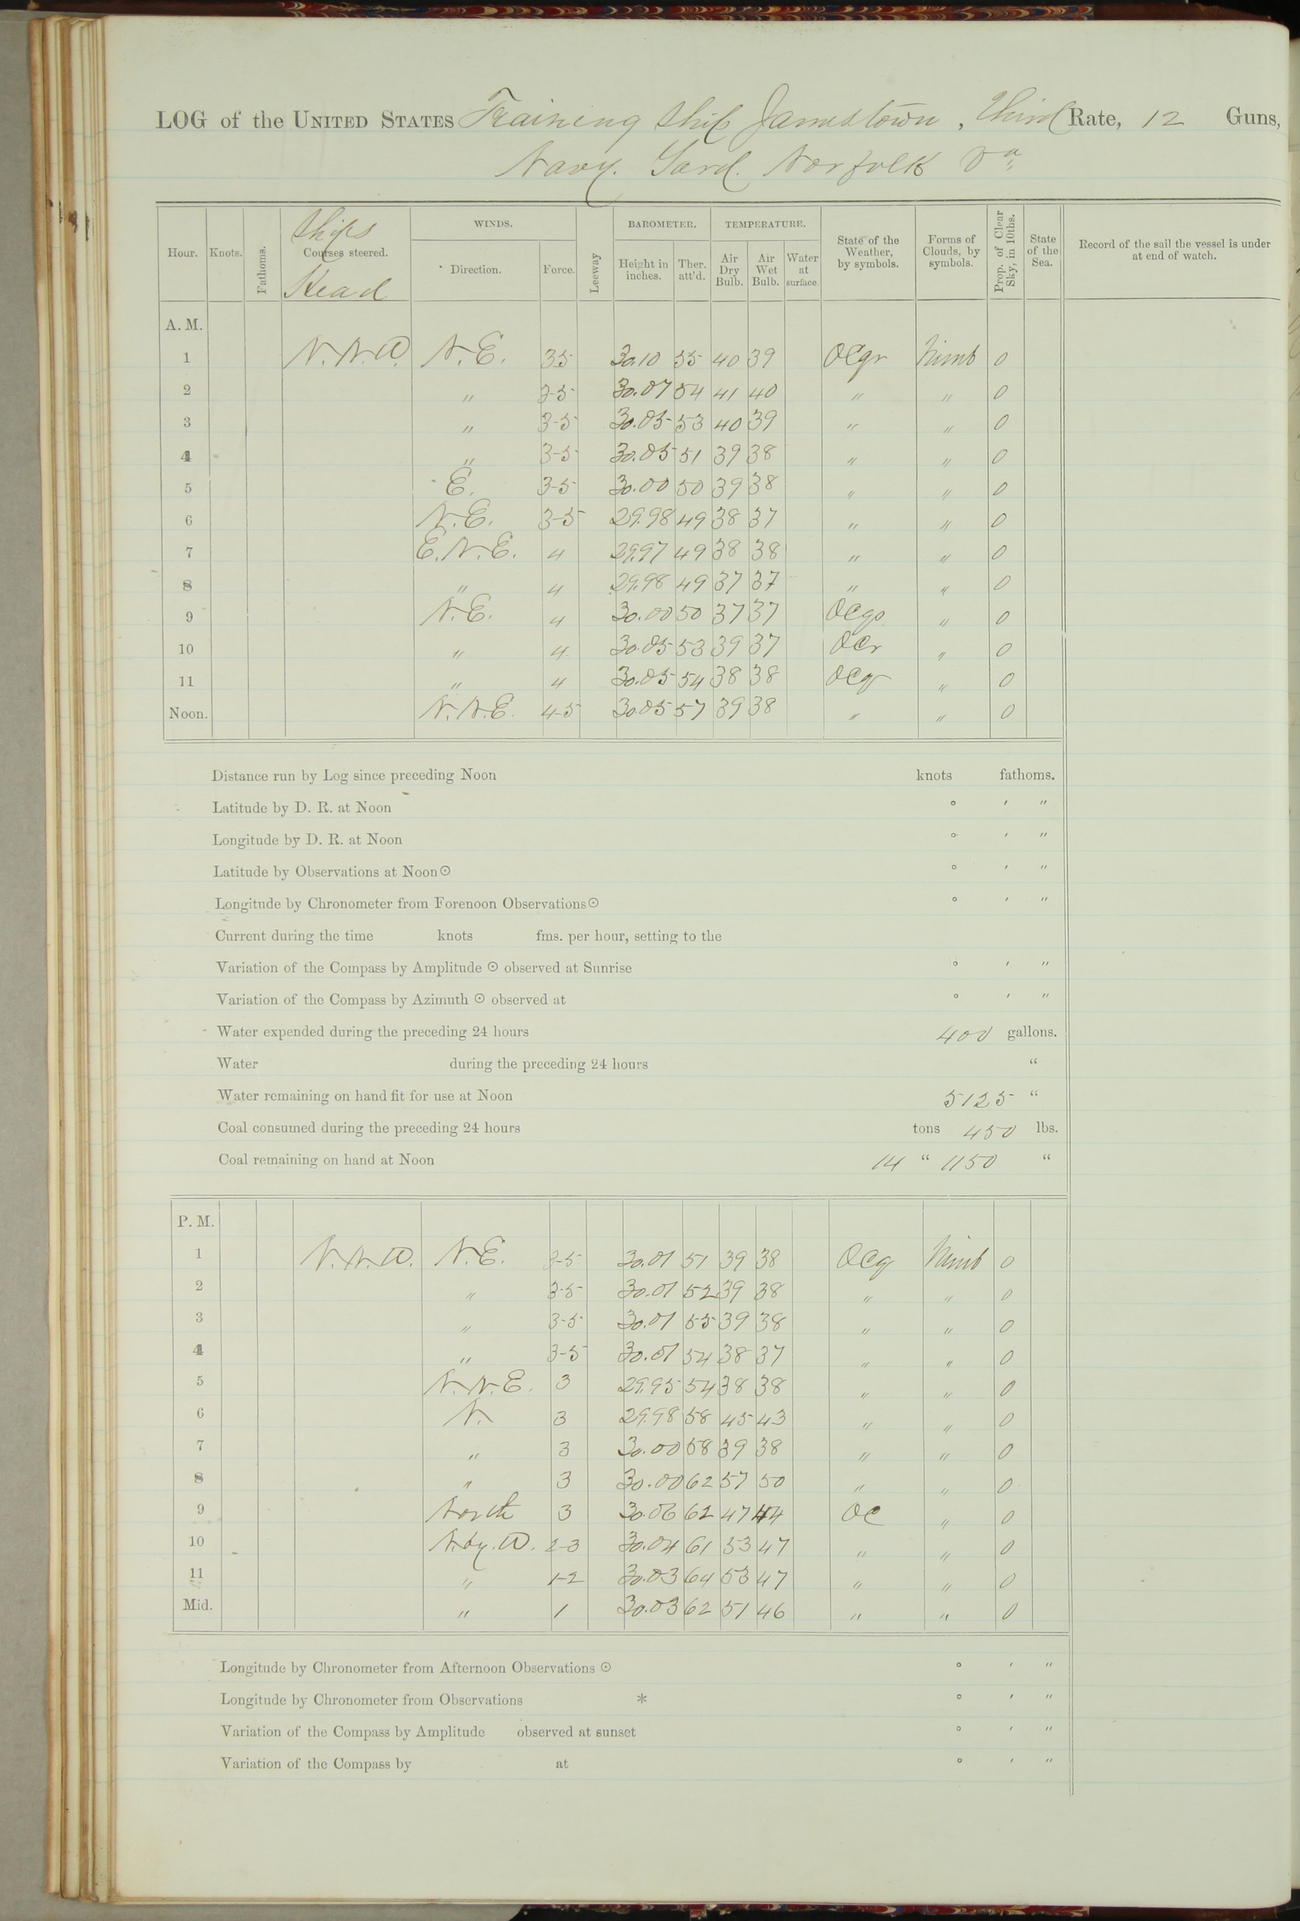 LOG of the UNITED STATES Training Ship Jamestown, Third Rate, 12 Guns,
Navy Yard Norfolk Va
Hour. Knots. Fathoms. Ships Courses steered. Head WINDS. Direction. Force. Leeway BAROMETER. Height in inches. Ther. att'd. TEMPERATURE. Air Dry Bulb. Air Wet Bulb. Water at surface. State of the Weather, by symbols. Forms of Clouds, by symbols. Prop. of Clear Sky, in 10ths. State of the Sea. Record of the sail the vessel is under at end of watch.
A. M.
1 N.N.W. N.E. 3-5 30.10 55 40 39 Ocgr Nimb 0
2 " 3-5 30.07 54 41 40 " " 0
3 " 3-5 30.05 53 40 39 " " 0
4 " 3-5 30.05 51 39 38 " " 0
5 E. 3-5 30.00 50 39 38 " " 0
6 N.E. 3-5 29.98 49 38 37 " " 0
7 E.N.E. 4 29.97 49 38 38 " " 0
8 " 4 29.98 49 37 37 " " 0
9 N.E. 4 30.00 50 37 37 Ocgs " 0
10 " 4 30.05 53 39 37 Ocr " 0
11 " 4 30.05 54 38 38 Ocg " 0
Noon. N.N.E. 4-5 30.05 57 39 38 " " 0
Distance run by Log since preceding Noon knots fathoms.
Latitude by D. R. at Noon ° ′ ″
Longitude by D. R. at Noon ° ′ ″
Latitude by Observations at Noon ☉ ° ′ ″
Longitude by Chronometer from Forenoon Observations ☉ ° ′ ″
Current during the time knots fms. per hour, setting to the
Variation of the Compass by Amplitude ☉ observed at Sunrise ° ′ ″
Variation of the Compass by Azimuth ☉ observed at ° ′ ″
Water expended during the preceding 24 hours 400 gallons.
Water during the preceding 24 hours "
Water remaining on hand fit for use at Noon 5125 "
Coal consumed during the preceding 24 hours tons 450 lbs.
Coal remaining on hand at Noon 14 " 1150 "
P. M.
1 N.N.W. N.E. 3-5 30.01 51 39 38 Ocg Nimb 0
2 " 3-5 30.01 52 39 38 " " 0
3 " 3-5 30.01 55 39 38 " " 0
4 " 3-5 30.01 54 38 37 " " 0
5 N.N.E. 3 29.95 54 38 38 " " 0
6 N. 3 29.98 58 45 43 " " 0
7 " 3 30.00 58 39 38 " " 0
8 " 3 30.00 62 57 50 " " 0
9 North 3 30.06 62 47 44 Oc " 0
10 N.by.W. 2-3 30.04 61 53 47 " " 0
11 " 1-2 30.03 64 53 47 " " 0
Mid. " 1 30.03 62 51 46 " " 0
Longitude by Chronometer from Afternoon Observations ☉ ° ′ ″
Longitude by Chronometer from Observations * ° ′ ″
Variation of the Compass by Amplitude observed at sunset ° ′ ″
Variation of the Compass by at ° ′ ″